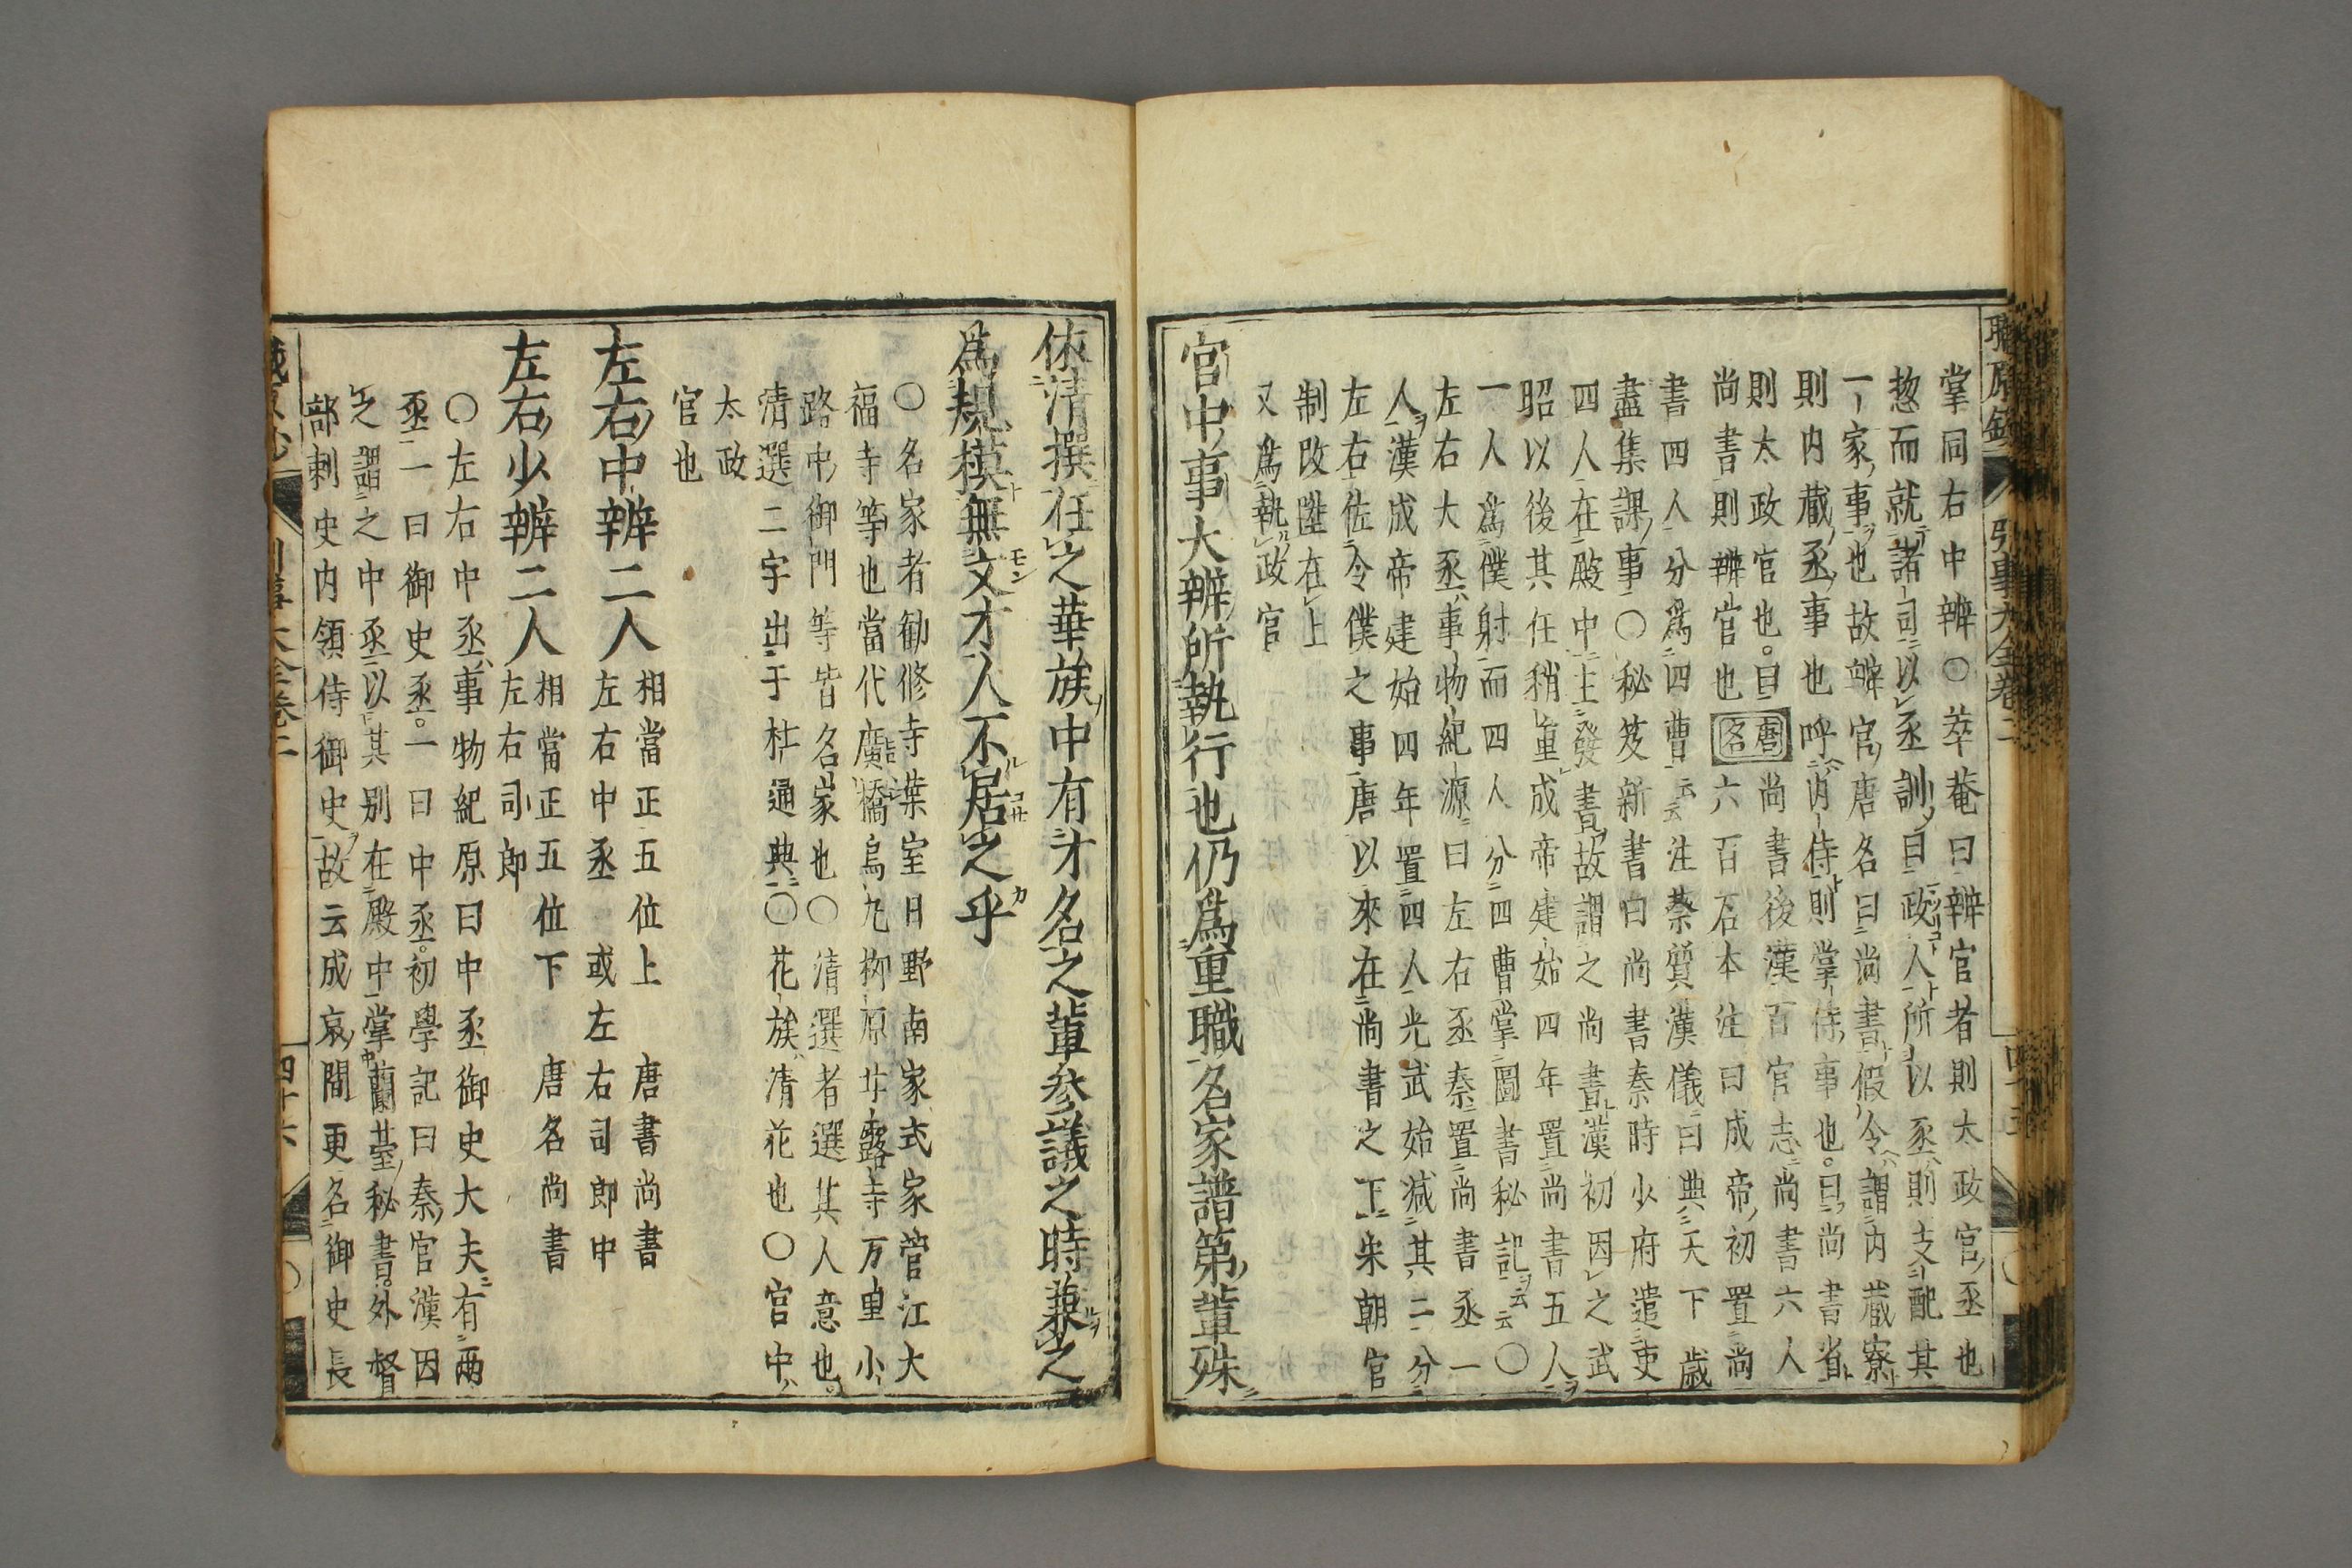 掌同右中辨〇萃菴曰辨官者則太政官丞也
惣而就諸司以丞訓曰政人所以丞則支配其
一家事也故辨官唐名曰尚書假令謂内蔵寮
則内蔵丞事也呼内侍則掌侍事也曰尚書省
則太政官也。曰唐名尚書後漢百官志尚書六人
尚書則辨官也六百石本注曰成帝初置尚
書四人分為四曹云云注蔡質漢儀曰典天下歳
盡集課事〇秘笈新書曰尚書秦時少府遣吏
四人在殿中主發書故謂之尚書漢初因之武
昭以後其任稍重成帝建始四年置尚書五人
一人為僕射而四人分四曹掌圖書秘記云云〇
左右大丞事物紀源曰左右丞秦置尚書丞一
人漢成帝建始四年置四人光武始减其二分
左右佐令僕之事唐以來在尚書之下朱朝官
制改陞在上
又為執政官
官中事大辨所執行也仍為重職名家譜第輩殊
依清撰任之華族中有才名之輩參議之時兼之
為規模無文才人不居之乎
〇名家者勧修寺葉室日野南家式家菅江大
福寺等也當代廣橋烏丸柳原甘露寺万里小
路中御門等皆名家也〇清選者選其人意也。
清選二字出于杜通典〇花族清花也〇宮中
太政
官也
左右中辨二人相當正五位上 唐書尚書
左右中丞 或左右司郎中
左右少辨二人相當正五位下 唐名尚書
左右司郎
〇左右中丞事物紀原曰中丞御史大夫有兩
丞一曰御史丞。一曰中丞。初學記曰秦官漢因
之謂之中丞以其別在殿中掌蘭臺秘書。外督
部刺史内領侍御史故云成哀間更名御史長
四十六